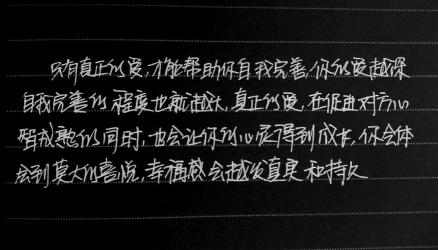 只有真正的爱,才能帮助你自我完善,你的爱越深
自我完善的程度也就越大,真正的爱,在促进对方心
智成熟的同时,也会让你的心灵得到成长,你会体
会到莫大的喜悦,幸福感会越发真实和持久